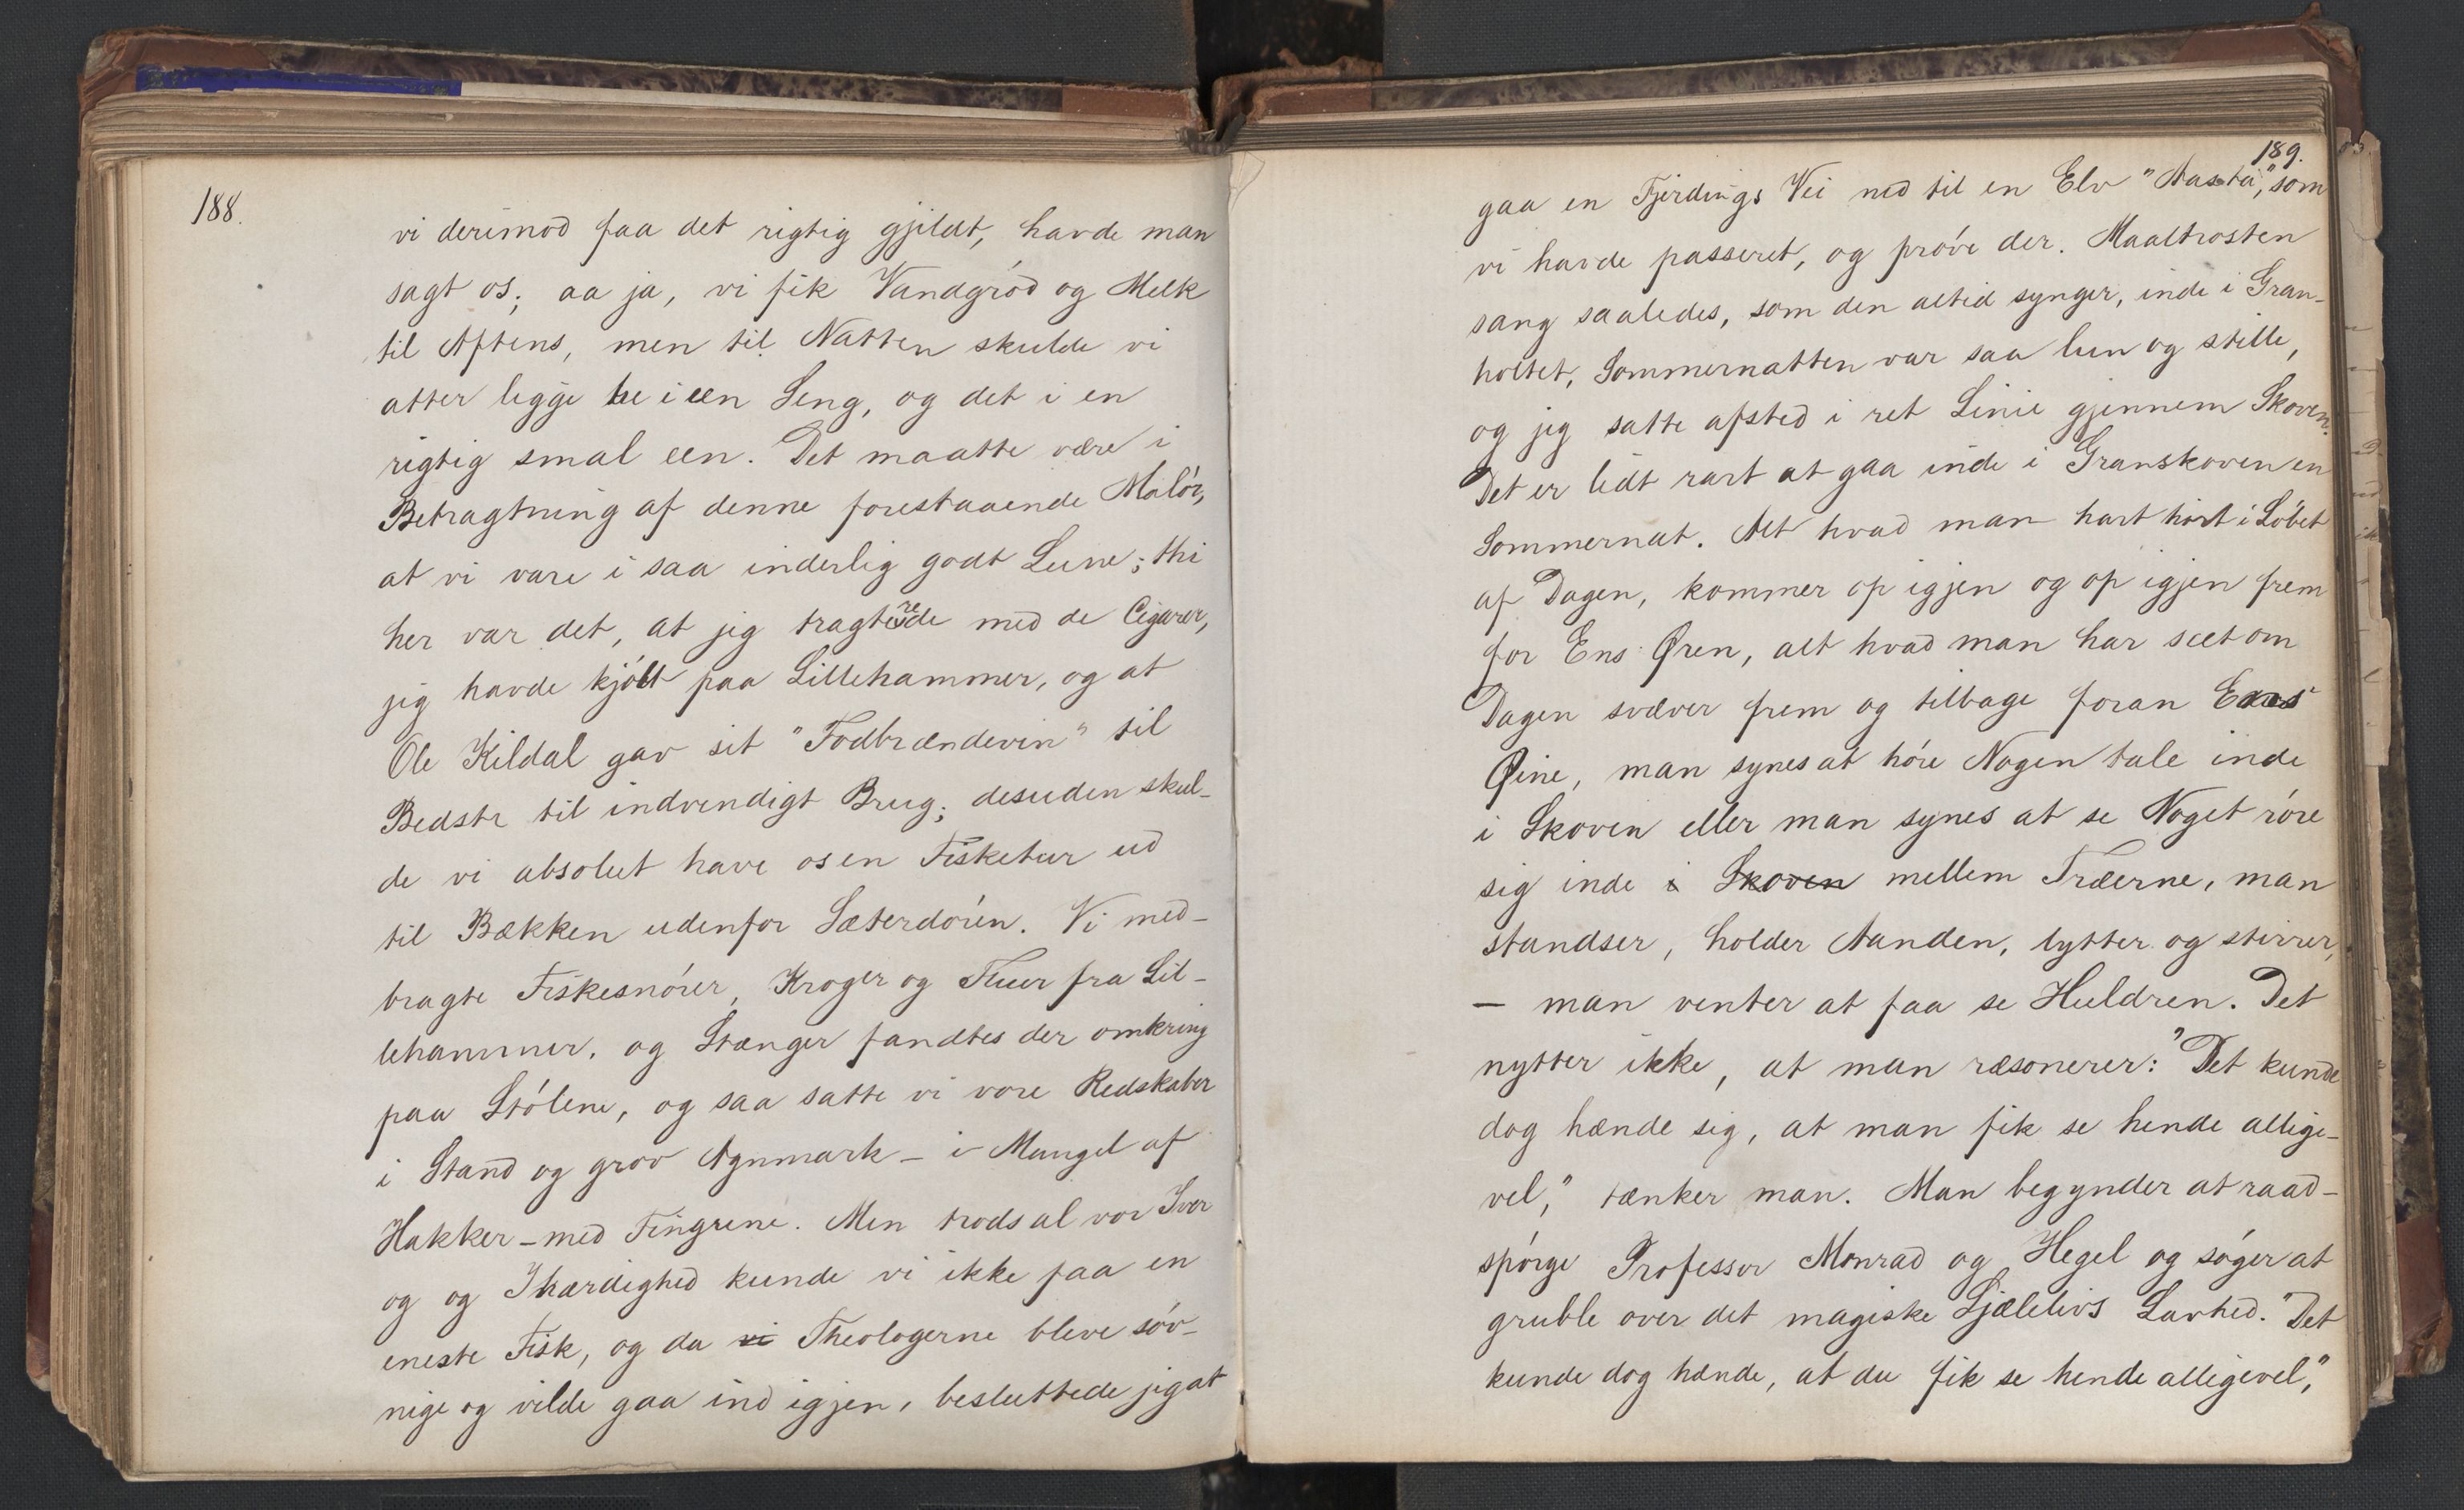 188.
vi derimod faa det rigtig gjildt, havde man
sagt os; aa ja, vi fik Vandgrød og Melk
til Aftens, men til Natten skulde vi
atter ligge tre i een Seng, og det i en
rigtig smal een. Det maatte være i
Betragtning af denne forestaaende Malør,
at vi vare i saa inderlig godt Lune; thi
her var det, at jeg tragterede med de Cigarer,
jeg havde kjøbt paa Lillehammer, og at
Ole Kildal gav sit "Fodbrændevin" til
Bedste til indvendigt Brug; desuden skul-
de vi absolut have os en Fisketur ud
til Bækken udenfor Sæterdøren. Vi med-
bragte Fiskesnører, Kroger og Fluer fra Lil-
lehammer, og Stænger fandtes der omkring
paa Stølene, og saa satte vi vore Redskaber
i Stand og grov Agnmark - i Mangel af
Hakker - med Fingrene. Men trods al vor Iver
og og Ihærdighed kunde vi ikke faa en
eneste Fisk, og da vi Theologerne bleve søv-
nige og vilde gaa ind igjen, besluttede jeg at
189.
gaa en Fjerdings Vei ned til en Elv "Aasta," som
vi havde passeret, og prøve der. Maaltrosten
sang saaledes, som den altid synger, inde i Gran-
holtet, Sommernatten var saa lun og stille,
og jeg satte afsted i ret Linie gjennem Skoven.
Det er lidt rart at gaa inde i Granskoven en
Sommernat. Alt hvad man hart hørt i Løbet
af Dagen, kommer op igjen og op igjen frem
for Ens Øren, alt hvad man har seet om
Dagen svæver frem og tilbage foran Ens
Øine, man synes at høre Nogen tale inde
i Skoven eller man synes at se Noget røre
sig inde i Skoven mellem Træerne, man
standser, holder Aanden, lytter og stirrer,
— man venter at faa se Huldren. Det
nytter ikke, at man ræsonerer: "Det kunde
dog hænde sig, at man fik se hende allige-
vel," tænker man. Man begynder at raad-
spørge Professor Monrad og Hegel og søger at
gruble over det magiske Sjælelivs Lavhed. "Det
kunde dog hænde, at du fik se hende alligevel,"